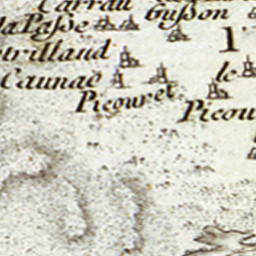 Carrau
la Passe
busson
1
trilland
Caunac
le
Picouret
Picou